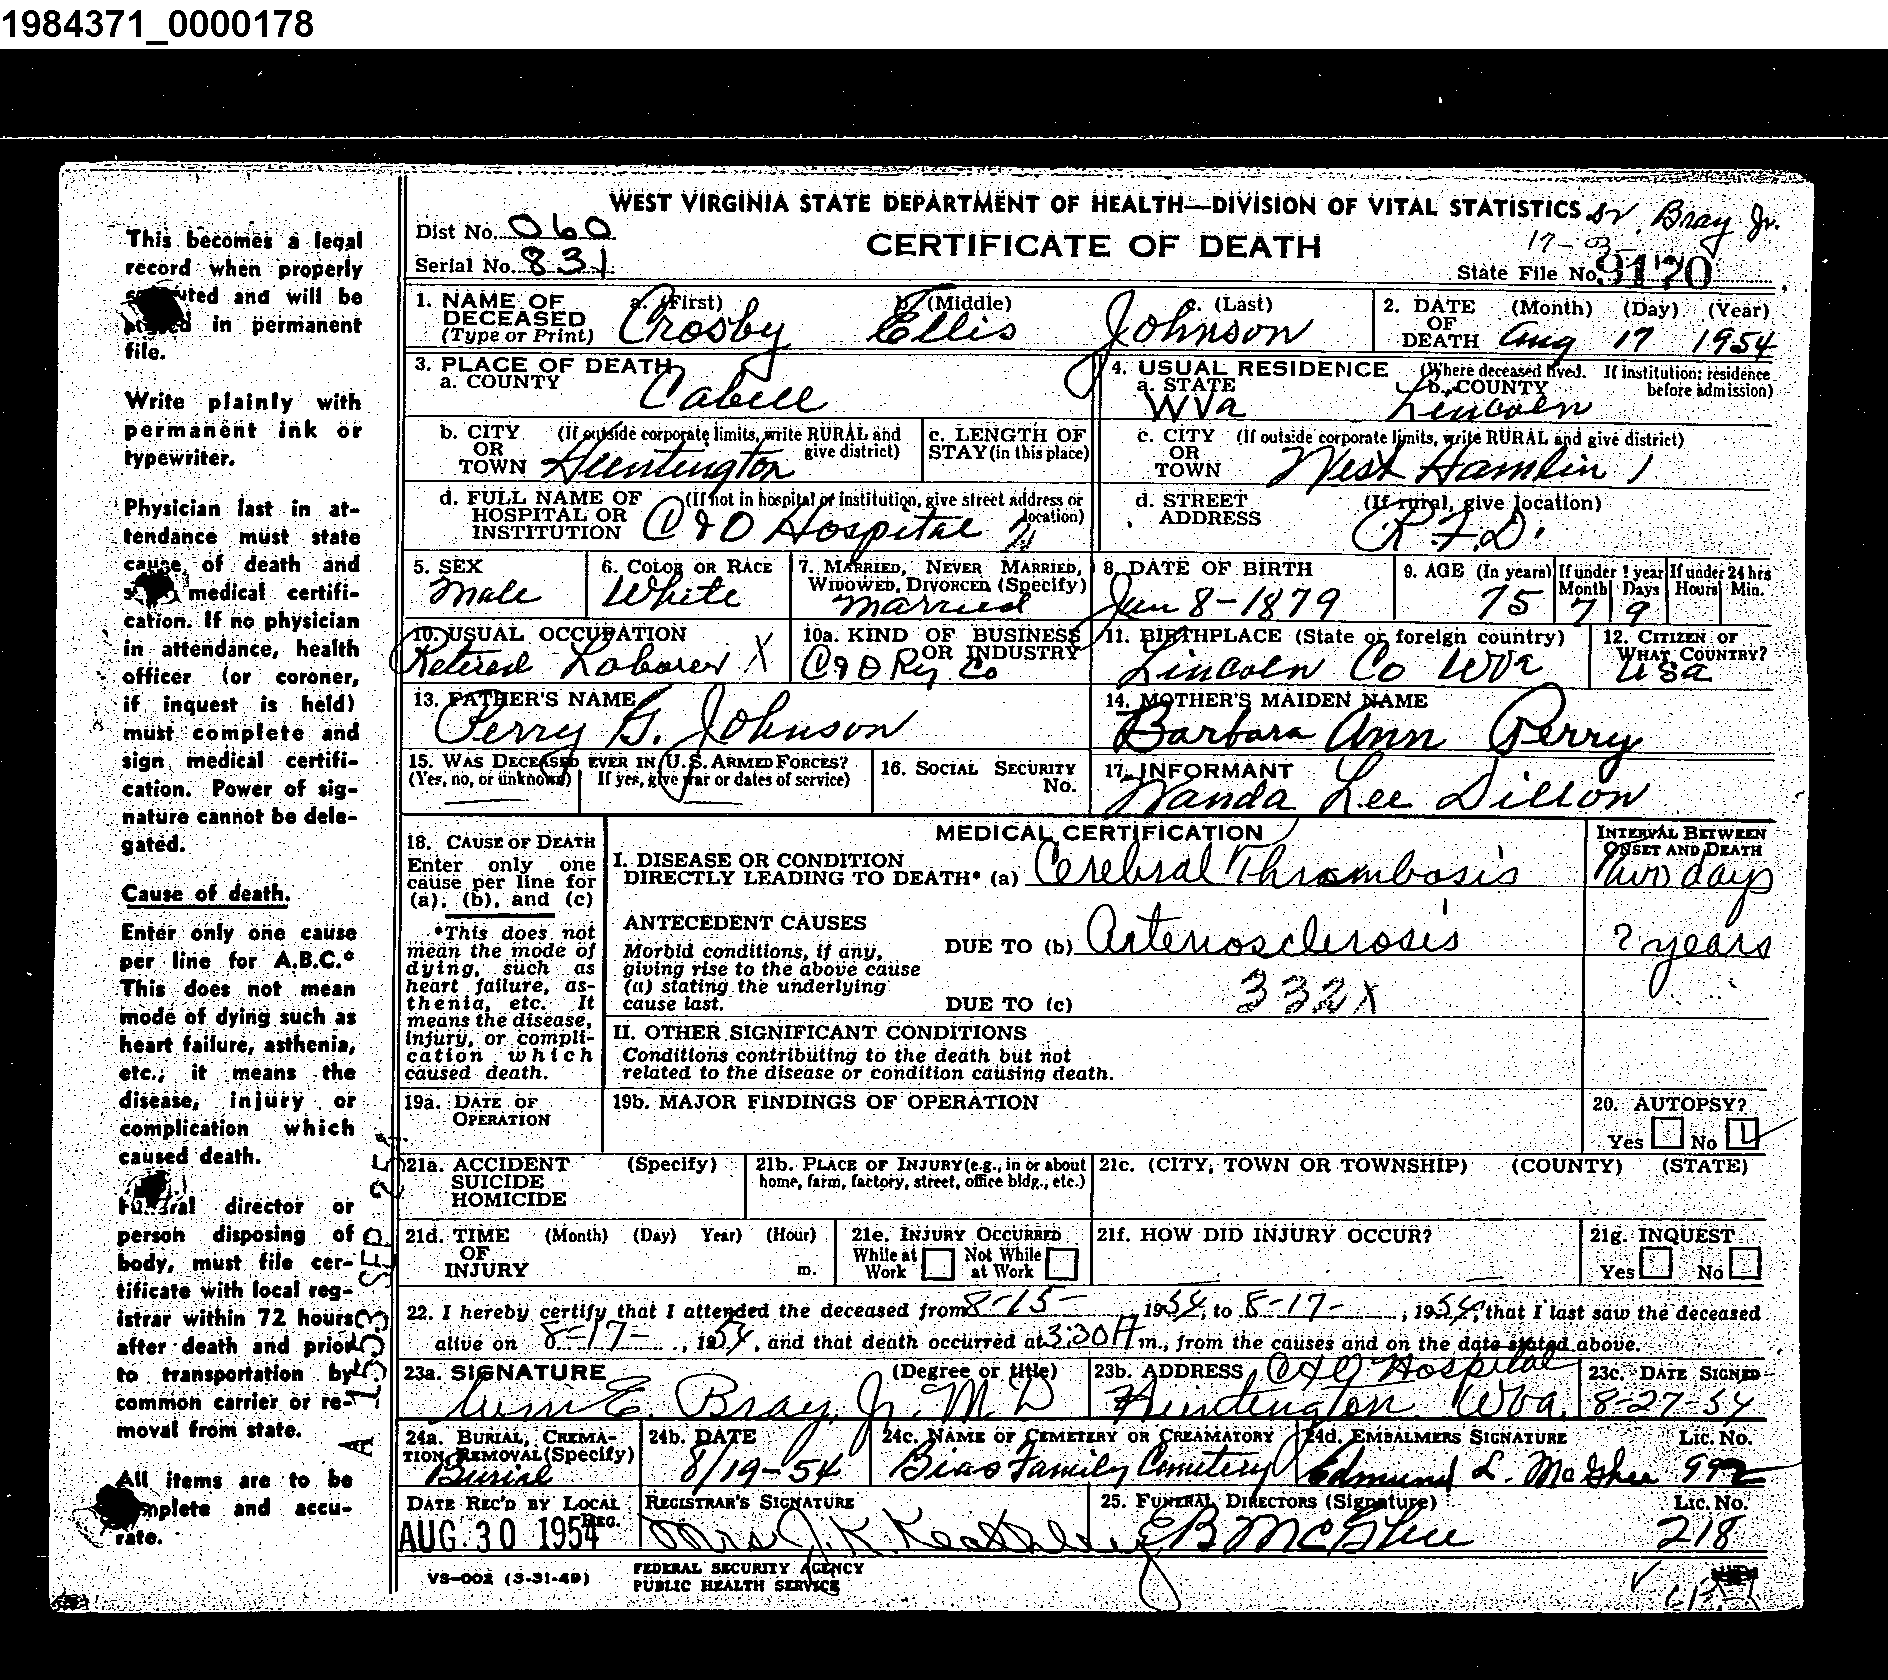 1984371_0000178
WEST VIRGINIA STATE DEPARTMENT OF HEALTH—DIVISION OF VITAL STATISTICS
Dr. Bray Jr.
Dist No. 060
CERTIFICATE OF DEATH
Serial No. 831
State File No. 9170
1. NAME OF DECEASED (Type or Print)
a. (First) Crosby
b. (Middle) Ellis
c. (Last) Johnson
2. DATE OF DEATH (Month) (Day) (Year) Aug 17 1954
3. PLACE OF DEATH
a. COUNTY Cabell
4. USUAL RESIDENCE (Where deceased lived. If institution: residence before admission)
a. STATE WVa
b. COUNTY Lincoln
b. CITY OR TOWN (If outside corporate limits, write RURAL and give district) Huntington
c. LENGTH OF STAY (in this place)
c. CITY OR TOWN (If outside corporate limits, write RURAL and give district) West Hamlin 1
d. FULL NAME OF HOSPITAL OR INSTITUTION (If not in hospital or institution, give street address or location) C & O Hospital
d. STREET ADDRESS (If rural, give location) R.F.D.
5. SEX Male
6. COLOR OR RACE White
7. MARRIED, NEVER MARRIED, WIDOWED, DIVORCED (Specify) Married
8. DATE OF BIRTH Jan 8-1879
9. AGE (In years) 75
If under 1 year Month 7 Days 9
If under 24 hrs Hours Min.
10. USUAL OCCUPATION Retired Laborer X
10a. KIND OF BUSINESS OR INDUSTRY C & O Ry Co
11. BIRTHPLACE (State or foreign country) Lincoln Co WVa
12. CITIZEN OF WHAT COUNTRY? USA
13. FATHER'S NAME Perry G. Johnson
14. MOTHER'S MAIDEN NAME Barbara Ann Perry
15. WAS DECEASED EVER IN U.S. ARMED FORCES?
(Yes, no, or unknown) If yes, give war or dates of service)
16. SOCIAL SECURITY No.
17. INFORMANT Wanda Lee Dillon
MEDICAL CERTIFICATION
INTERVAL BETWEEN ONSET AND DEATH
18. CAUSE OF DEATH
Enter only one cause per line for (a), (b), and (c)
*This does not mean the mode of dying, such as heart failure, asthenia, etc. It means the disease, injury, or complication which caused death.
I. DISEASE OR CONDITION DIRECTLY LEADING TO DEATH* (a) Cerebral Thrombosis
Two days
ANTECEDENT CAUSES
Morbid conditions, if any, giving rise to the above cause (a) stating the underlying cause last.
DUE TO (b) Arteriosclerosis
? years
DUE TO (c)
332X
II. OTHER SIGNIFICANT CONDITIONS
Conditions contributing to the death but not related to the disease or condition causing death.
19a. DATE OF OPERATION
19b. MAJOR FINDINGS OF OPERATION
20. AUTOPSY?
Yes No
21a. ACCIDENT SUICIDE HOMICIDE (Specify)
21b. PLACE OF INJURY (e.g., in or about home, farm, factory, street, office bldg., etc.)
21c. (CITY, TOWN OR TOWNSHIP) (COUNTY) (STATE)
21d. TIME OF INJURY (Month) (Day) Year) (Hour) m.
21e. INJURY OCCURRED
While at Work Not While at Work
21f. HOW DID INJURY OCCUR?
21g. INQUEST
Yes No
22. I hereby certify that I attended the deceased from 8-15-, 1954, to 8-17-, 1954, that I last saw the deceased
alive on 8-17-, 1954, and that death occurred at 3:30 A m., from the causes and on the date stated above.
23a. SIGNATURE (Degree or title) E. Bray, Jr. M.D
23b. ADDRESS C & O Hospital Huntington WVa.
23c. DATE SIGNED 8-27-54
24a. BURIAL, CREMATION, REMOVAL (Specify) Burial
24b. DATE 8/19-54
24c. NAME OF CEMETERY OR CREAMATORY Bias Family Cemetery
24d. EMBALMERS SIGNATURE Edmund L. McGhee
Lic. No. 992
DATE REC'D BY LOCAL REG. AUG 30 1954
REGISTRAR'S SIGNATURE Mrs J. K. Keathley
25. FUNERAL DIRECTORS (Signature) E B McGhee
Lic. No. 218
VS-002 (3-31-49)
FEDERAL SECURITY AGENCY
PUBLIC HEALTH SERVICE
This becomes a legal
record when properly
executed and will be
placed in permanent
file.
Write plainly with
permanent ink or
typewriter.
Physician last in at-
tendance must state
cause of death and
medical certifi-
cation. If no physician
in attendance, health
officer (or coroner,
if inquest is held)
must complete and
sign medical certifi-
cation. Power of sig-
nature cannot be dele-
gated.
Cause of death.
Enter only one cause
per line for A.B.C.*
This does not mean
mode of dying such as
heart failure, asthenia,
etc., it means the
disease, injury or
complication which
caused death.
Funeral director or
person disposing of
body, must file cer-
tificate with local reg-
istrar within 72 hours
after death and prior
to transportation by
common carrier or re-
moval from state.
All items are to be
complete and accu-
rate.